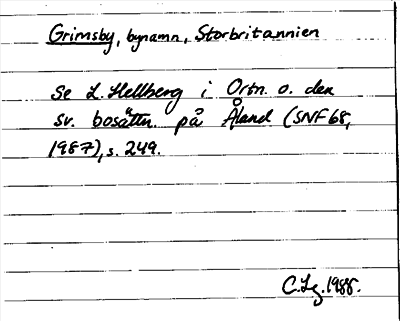 Grimsby, bynamn, Storbritannien
Se L. Hellberg i Ortn. o. den
sv. bosättn. på Åland (SNF 68,
1987), s. 249.
C. Lg. 1988.